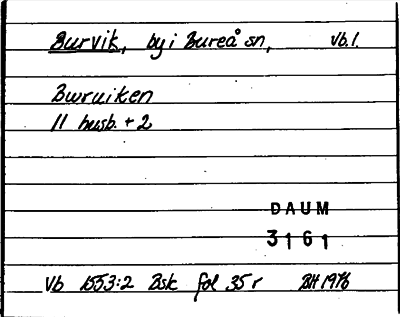 Burvik, by i Bureå sn, Vb.l.
Bwruiken
11 husb. + 2
DAUM
3161
Vb 1553:2 Bsk fol 35 r BH 1976